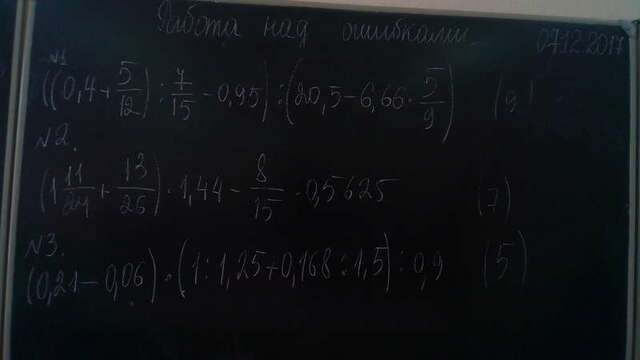 Работа над ошибками 07.12.2017
№1
((0,4+5/12):7/15-0,95):(20,5-6,66·5/9) (9)
№2.
(1 11/24+13/26)·1,44-8/15·0,5625 (7)
№3.
(0,21-0,06)·(1:1,25+0,168:1,5):0,9 (5)